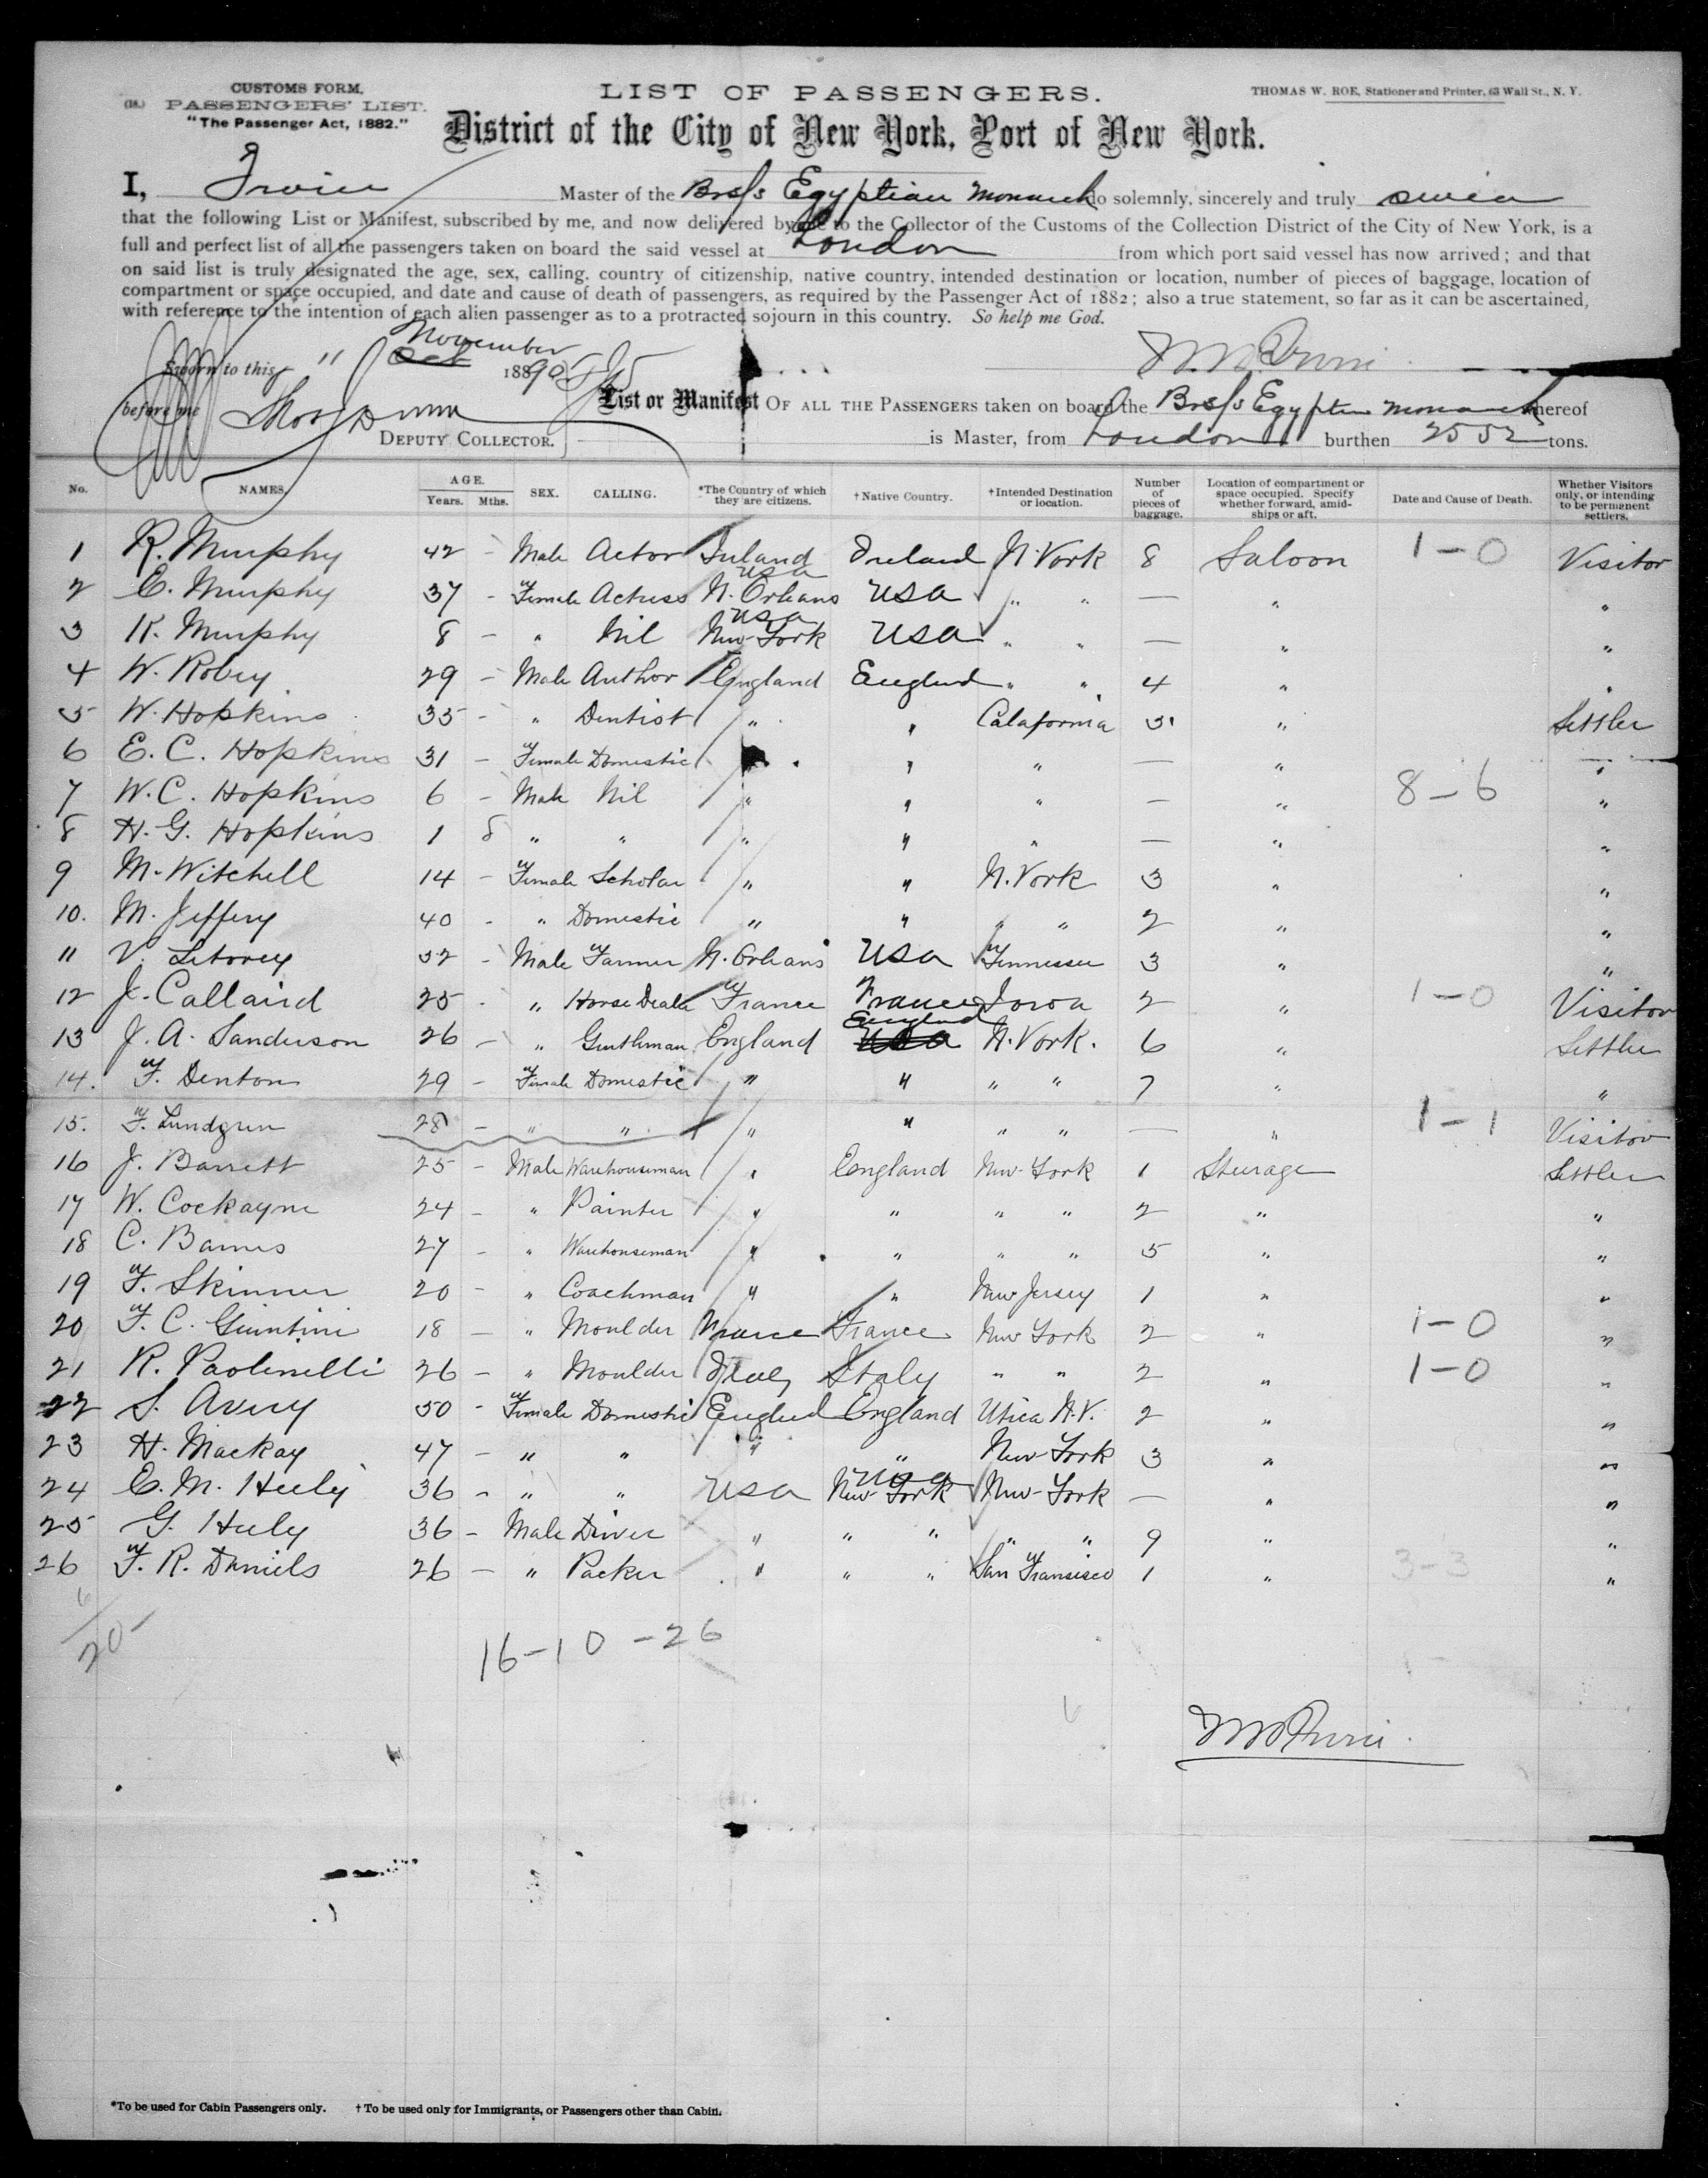 CUSTOMS FORM.
(18.) PASSENGERS' LIST.
"The Passenger Act, 1882."
LIST OF PASSENGERS.
THOMAS W. ROE, Stationer and Printer, 63 Wall St., N. Y.
District of the City of New York, Port of New York.
I, Irvin Master of the Br s/s Egyptian Monarch do solemnly, sincerely and truly swear
that the following List or Manifest, subscribed by me, and now delivered by me to the Collector of the Customs of the Collection District of the City of New York, is a
full and perfect list of all the passengers taken on board the said vessel at London from which port said vessel has now arrived; and that
on said list is truly designated the age, sex, calling, country of citizenship, native country, intended destination or location, number of pieces of baggage, location of
compartment or space occupied, and date and cause of death of passengers, as required by the Passenger Act of 1882; also a true statement, so far as it can be ascertained,
with reference to the intention of each alien passenger as to a protracted sojourn in this country. So help me God.
Sworn to this 11 Oct November 1890
before me
DEPUTY COLLECTOR.
List or Manifest OF ALL THE PASSENGERS taken on board the Br s/s Egyptian Monarch whereof
is Master, from London burthen 2552 tons.
No. NAMES. AGE. Years. Mths. SEX. CALLING. *The Country of which they are citizens. †Native Country. †Intended Destination or location. Number of pieces of baggage. Location of compartment or space occupied. Specify whether forward, amidships or aft. Date and Cause of Death. Whether Visitors only, or intending to be permanent settlers.
1 R. Murphy 42 - Male Actor Ireland Ireland N. York 8 Saloon 1-0 Visitor
2 E. Murphy 37 - Female Actress N. Orleans USA USA " " — " "
3 K. Murphy 8 - " Nil New York USA USA " " — " "
4 W. Robey 29 - Male Author England England " " 4 " "
5 W. Hopkins 35 - " Dentist " " Calafornia 3 " Settler
6 E. C. Hopkins 31 - Female Domestic " " — " "
7 W. C. Hopkins 6 - Male Nil " " " — " 8-6 "
8 H. G. Hopkins 1 8 " " " " " — " "
9 M. Witchell 14 - Female Scholar " " N. York 3 " "
10. M. Jeffery 40 - " Domestic " " " " 2 " "
11 V. Letorey 32 - Male Farmer N. Orleans USA Tennessee 3 " "
12 J. Callaird 25 - " Horse Dealer France France Iowa 2 " 1-0 Visitor
13 J. A. Sanderson 26 - " Gentleman England England USA N. York. 6 " Settler
14. F. Denton 29 - Female Domestic " " " " 7 " "
15. F. Lundgren 28 - " " " " " " — " 1-1 Visitor
16 J. Barrett 25 - Male Warehouseman " England New York 1 Steerage Settler
17 W. Cockayne 24 - " Painter " " " " 2 " "
18 C. Barnes 27 - " Warehouseman " " " " 5 " "
19 F. Skinner 20 - " Coachman " " New Jersey 1 " "
20 F. C. Giuntini 18 - " Moulder France France New York 2 " 1-0 "
21 R. Paolinelli 26 - " Moulder Italy Italy " " 2 " 1-0 "
22 S. Avery 50 - Female Domestic England England Utica N.Y. 2 " "
23 H. Mackay 47 - " " " " New York 3 " "
24 E. M. Huly 36 - " " USA New York USA New York — " "
25 G. Huly 36 - Male Driver " " " " " 9 " "
26 F. R. Daniels 26 - " Packer " " " San Fransisco 1 " 3-3 "
6
20
16-10-26
*To be used for Cabin Passengers only. † To be used only for Immigrants, or Passengers other than Cabin.